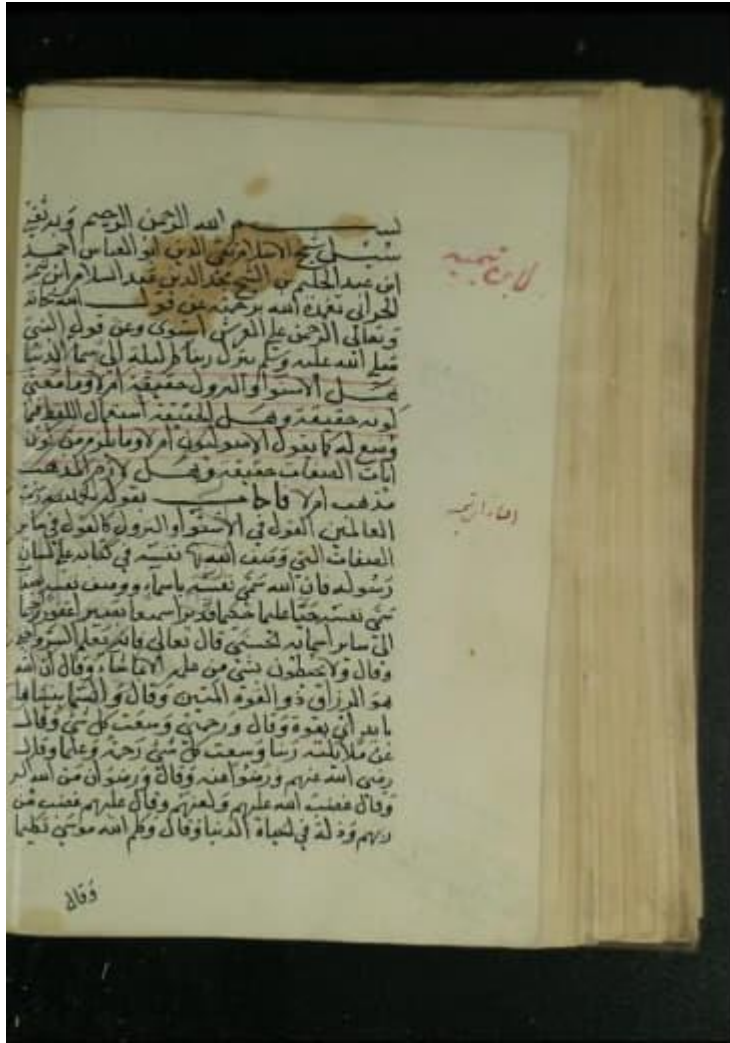 بســـم الله الرحمن الرحيم وبه نقتي
سئل شيخ الاسلام تقي الدين ابو العباس احمد
ابن عبد الحليم بن الشيخ مجد الدين عبد السلام ابن تيمية
الحراني تغمده الله برحمته عن قول الله سبحانه
وتعالى الرحمن على العرش استوى وعن قول النبي
صلى الله عليه وسلم ينزل ربنا كل ليلة الى سما الدنيا
هــل الاستوا والنزول حقيقة ام لا وما معنى
كونه حقيقة وهــل الحقيقة استعمال اللفظ فيما
وضع له كما يقول الاصوليون ام لا وما يلزم من كون
ايات الصفات حقيقة وهــل لازم المذهب
مذهب ام لا فاجاب بقوله الحمد لله رب
العالمين القول في الاستوا والنزول كالقول في ساير
الصفات التي وصف الله بها نفسه في كتابه على لسان
رسوله فان الله سمى نفسه باسماء ووصف نفسه بصفات
سمى نفسه حيا عليما حكيما قديرا سميعا بصيرا غفورا رحيما
الى ساير اسمائه الحسنى قال تعالى فانه يعلم السر واخفى
وقال ولا يحيطون بشي من علمه الا بما شاء وقال ان الله
هو الرزاق ذو القوة المتين وقال والسما بنيناها
بايد اي بقوة وقال ورحمتي وسعت كل شي وقال
عن ملائكته ربنا وسعت كل شي رحمة وعلما وقال
رضي الله عنهم ورضوا عنه وقال ورضوان من الله اكبر
وقال غضب الله عليهم ولعنهم وقال عليهم غضب من
ربهم وذلة في الحياة الدنيا وقال وكلم الله موسى تكليما
وقال
لابن تيمية